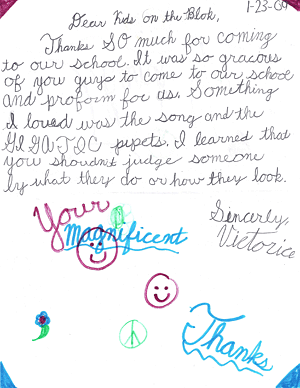 1-23-09
Dear Kids on the Blok,
Thanks SO much for coming
to our school. It was so gracous
of you guys to come to our school
and proform for us. Something
I loved was the song and the
GIGATIC pupets. I learned that
you shouldn't judge someone
by what they do or how they look.
Sincerly,
Victorice
Your
Magnificent
Thanks